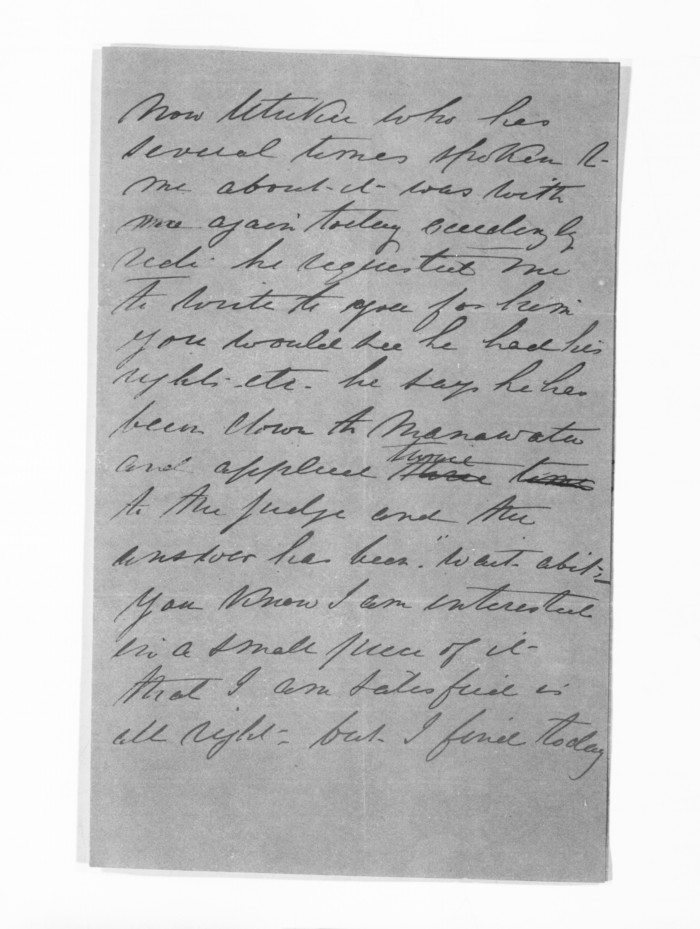 now Utuku who has
several times spoken to
me about it was with
me again today exceedingly
he requested me
to write to you for him
you would see he had his
rights etc. he says he has
been down to Manawatu
and applied twice three times
to the judge and the
answer has been "wait abit"
you know I am interested
in a small piece of it
that I am satisfied is
all right - but I find today